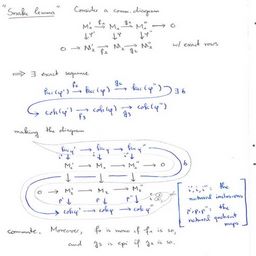 "Snake lemma" Consider a comm. diagram
M₁' →f₁ M₁ →g₁ M₁'' → 0
↓φ' ↓φ ↓φ''
0 → M₂' →f₂ M₂ →g₂ M₂'' w/ exact rows
⟹ ∃ exact sequence
ker(φ') → ker(φ) → ker(φ'') ∃ δ
cok(φ') → cok(φ) → cok(φ'')
making the diagram
ker φ' → ker φ → ker φ''
M₁' → M₁ → M₁'' → 0
0 → M₂' → M₂ → M₂''
cok φ' → cok φ → cok φ''
i', i, i'' the
natural inclusions
p', p, p'' the
natural quotient
maps
commute. Moreover, f₀ is mono if f₁ is so,
and g₃ is epi if g₂ is so.